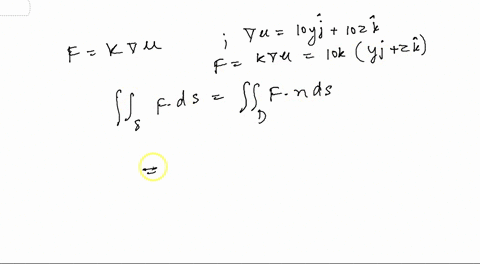 F = K ∇u ; ∇u = 10yĵ + 10zk̂
F = K∇u = 10k (yĵ + zk̂)
∬_S F·ds = ∬_D F·n ds
=